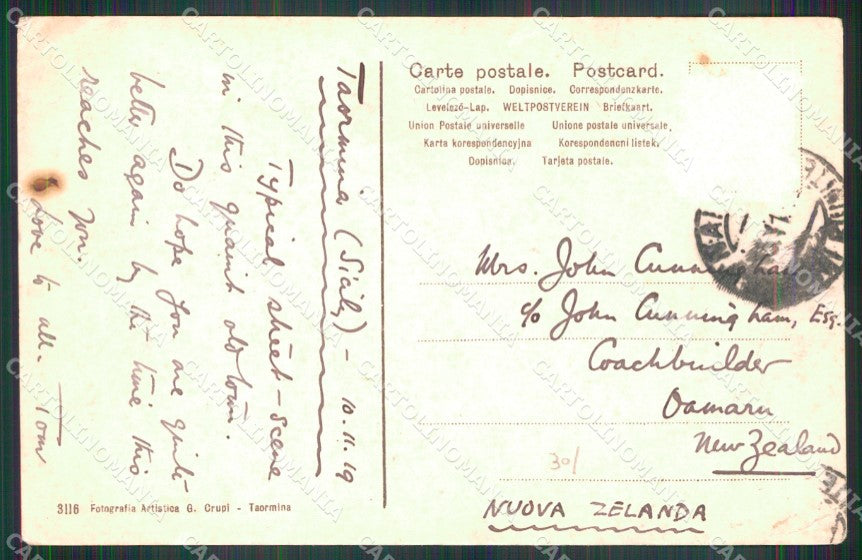 Taormina (Sicily) - 10.11.19
Typical street-scene
in this quaint old town.
Do hope you are quite
better again by the time this
reaches you.
Love to all. Tom
3116 Fotografia Artistica G. Crupi - Taormina
Carte postale. Postcard.
Cartolina postale. Dopisnice. Correspondenzkarte.
Levelező-Lap. WELTPOSTVEREIN Briefkaart.
Union Postale universelle Unione postale universale.
Karta korespondencyjna Korespondencni listek.
Dopisnica. Tarjeta postale.
Mrs. John Cunningham
c/o John Cunningham, Esq.
Coachbuilder
Oamaru
New Zealand
30/
NUOVA ZELANDA
CARTOLINOMANIA